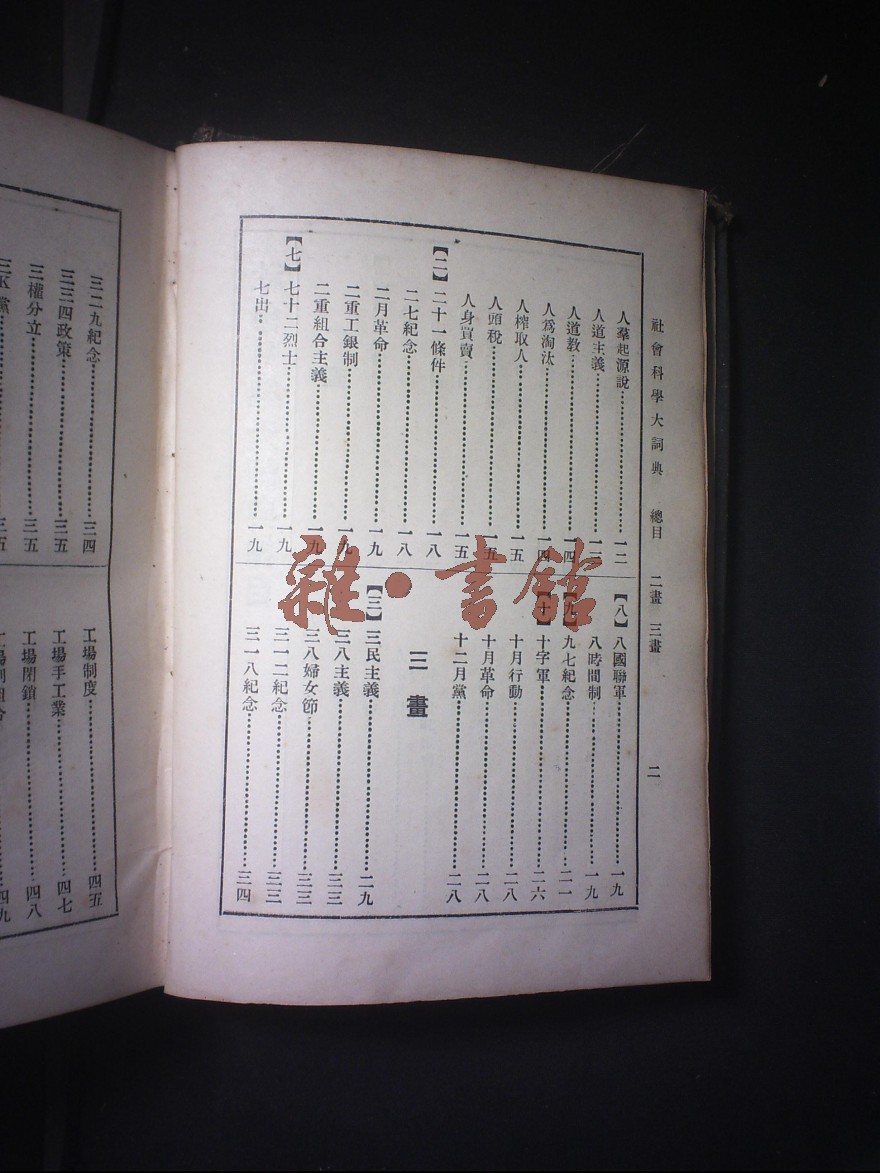 社會科學大詞典 總目 二畫 三畫 二
人羣起源說 一二
人道主義 一三
人道教 一四
人爲淘汰 一四
人榨取人 一五
人頭稅 一五
人身買賣 一五
【二】二十一條件 一八
二七紀念 一八
二月革命 一九
二重工銀制 一九
二重組合主義 一九
【七】七十二烈士 一九
七出 一九
【八】八國聯軍 一九
八時間制 一九
【九】九七紀念 二一
【十】十字軍 二六
十月行動 二八
十月革命 二八
十二月黨 二八
三畫
【三】三民主義 二九
三八主義 三三
三八婦女節 三三
三一二紀念 三三
三一八紀念 三四
三二九紀念 三四
三三四政策 三五
三權分立 三五
三K黨 三五
工場制度 四五
工場手工業 四七
工場閉鎖 四八
雜·書館